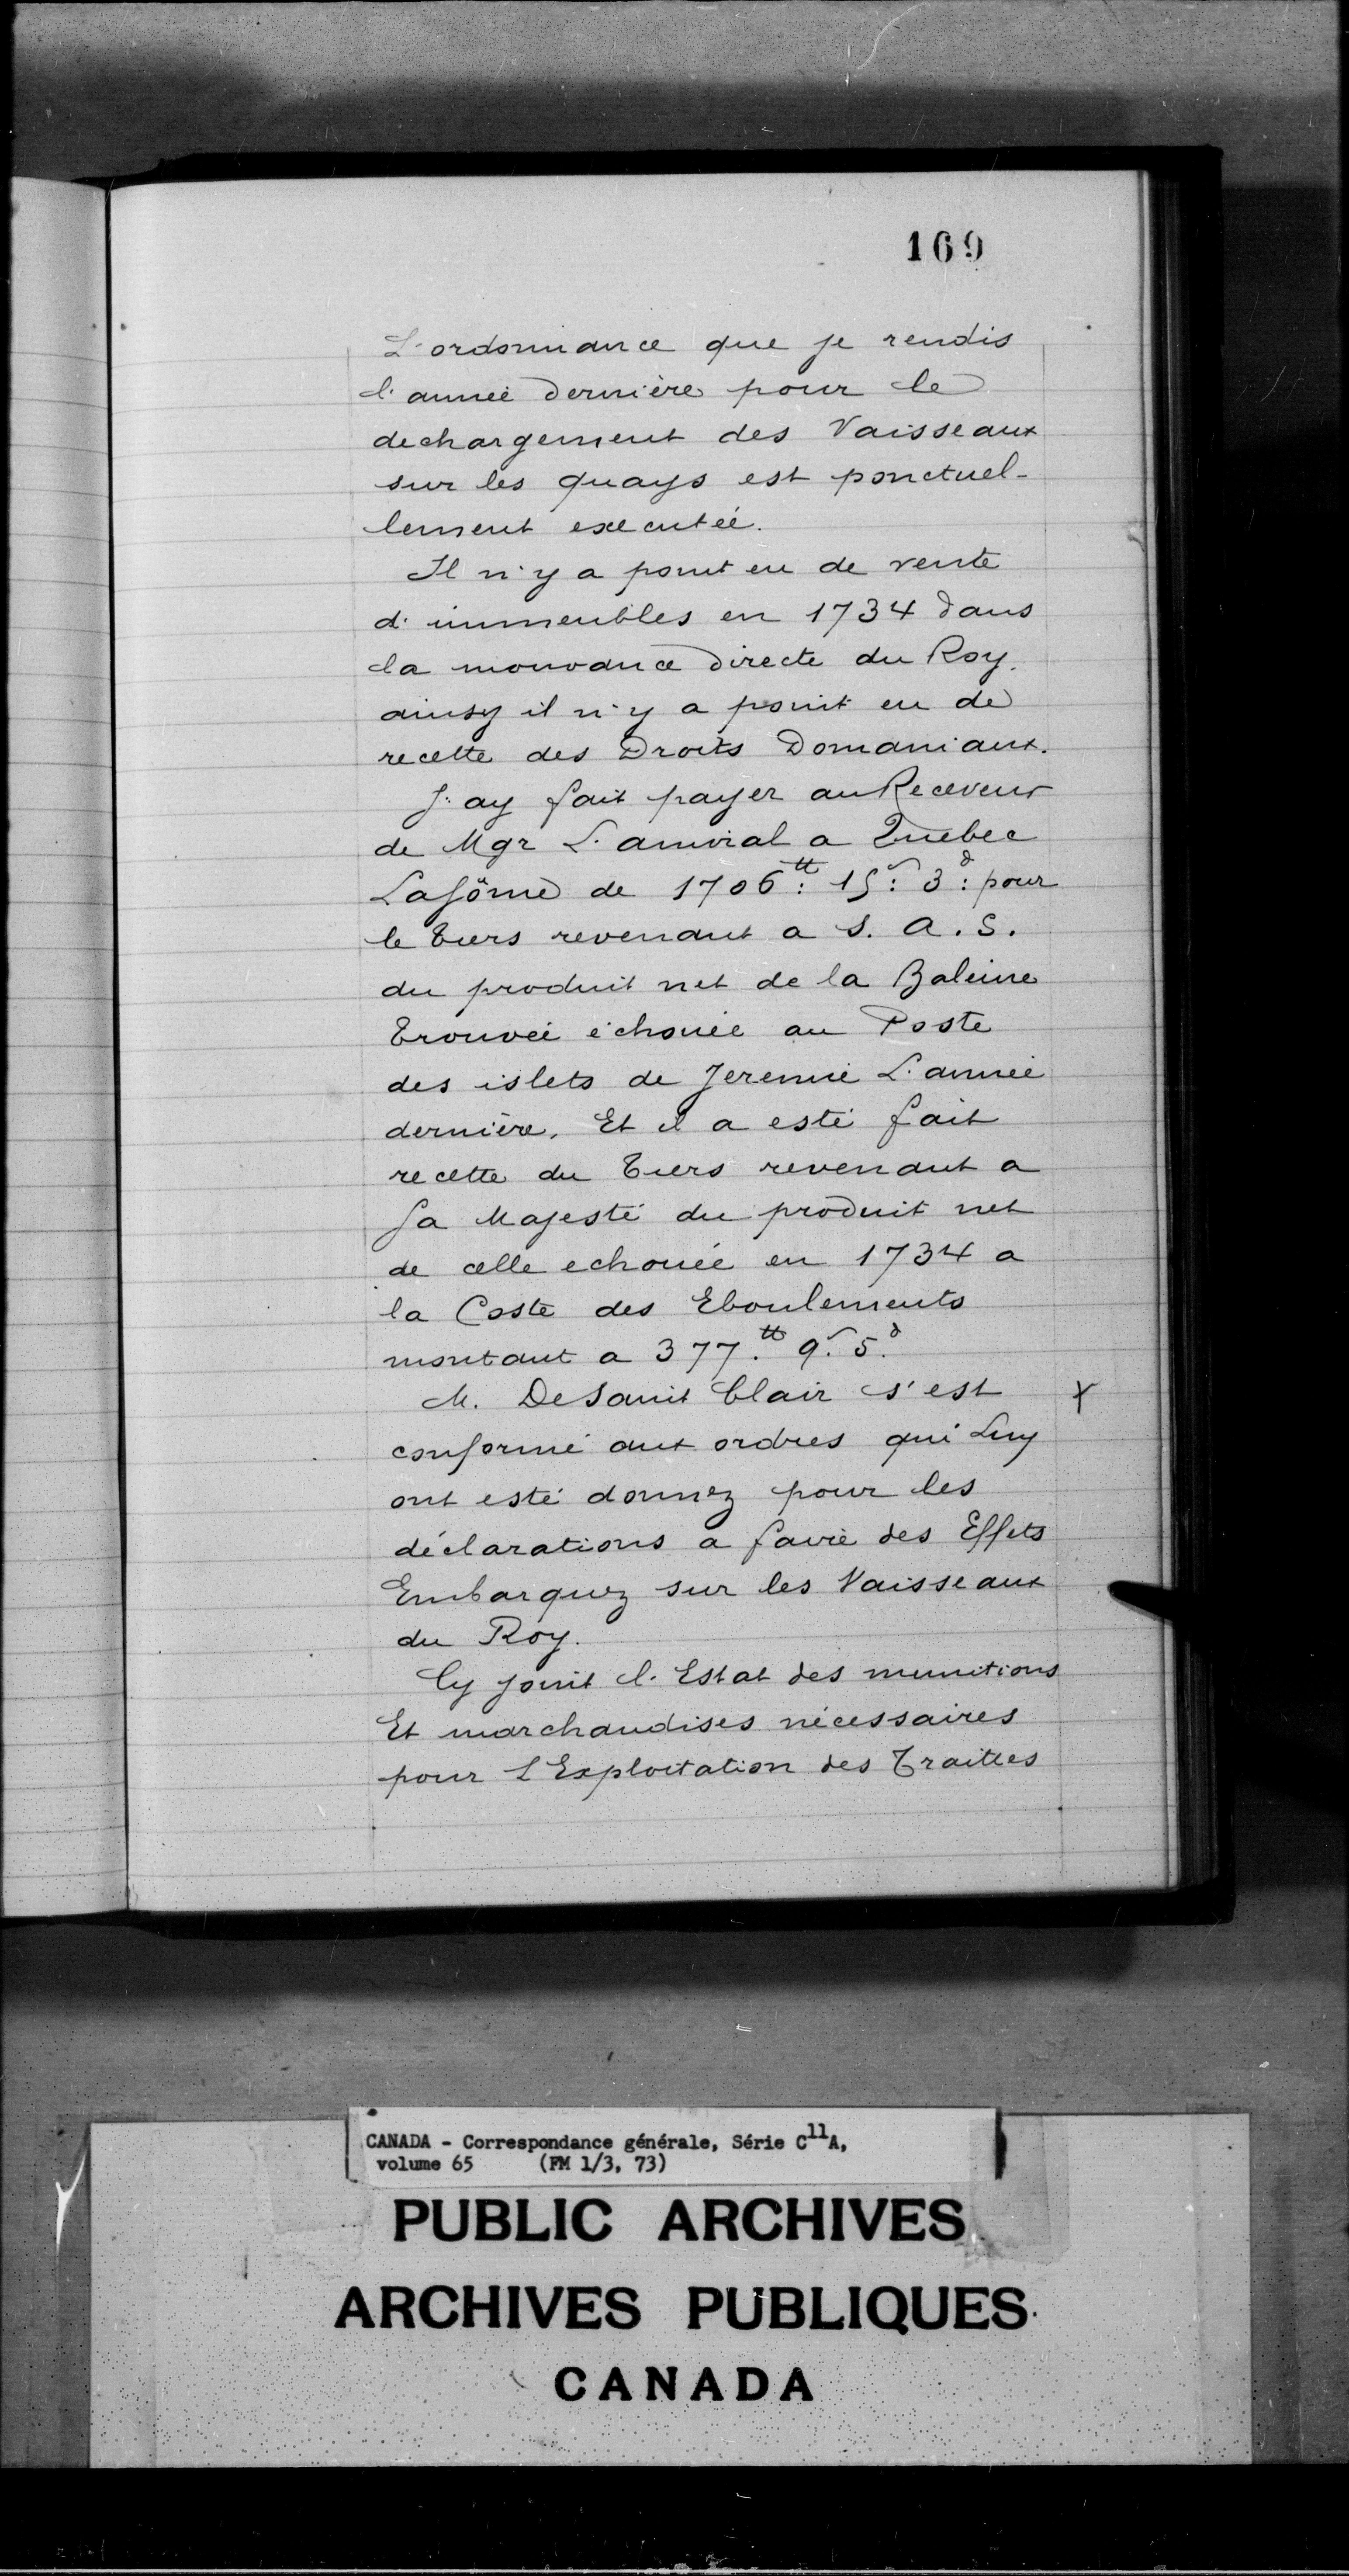 169
L'ordonnance que je rendis
l'année dernière pour le
dechargement des Vaisseaux
sur les quays est ponctuel-
lement executée.
Il n'y a point eu de vente
d'immeubles en 1734 dans
la mouvance directe du Roy.
ainsy il n'y a point eu de
recette des Droits Domaniaux.
J'ay fait payer au Receveur
de Mgr L'amiral a Quebec
La sõme de 1706.tt 15.s 3.d: pour
le tiers revenant a S. A. S.
du produit net de la Baleine
trouvée échouée au Poste
des islets de Jeremie L'année
dernière. Et il a esté fait
recette du tiers revenant a
Sa Majesté du produit net
de celle echouée en 1734 a
la Coste des Eboulements
montant a 377.tt 9.s 5.d
M. De Saint Clair s'est X
conformé aux ordres qui Luy
ont esté donnez pour les
déclarations a faire des Effets
Embarquez sur les Vaisseaux
du Roy.
Cy joint l'Estat des munitions
Et marchandises nécessaires
pour L'Exploitation des Traittes
CANADA - Correspondance générale, Série C11A,
volume 65 (FM 1/3, 73)
PUBLIC ARCHIVES
ARCHIVES PUBLIQUES
CANADA